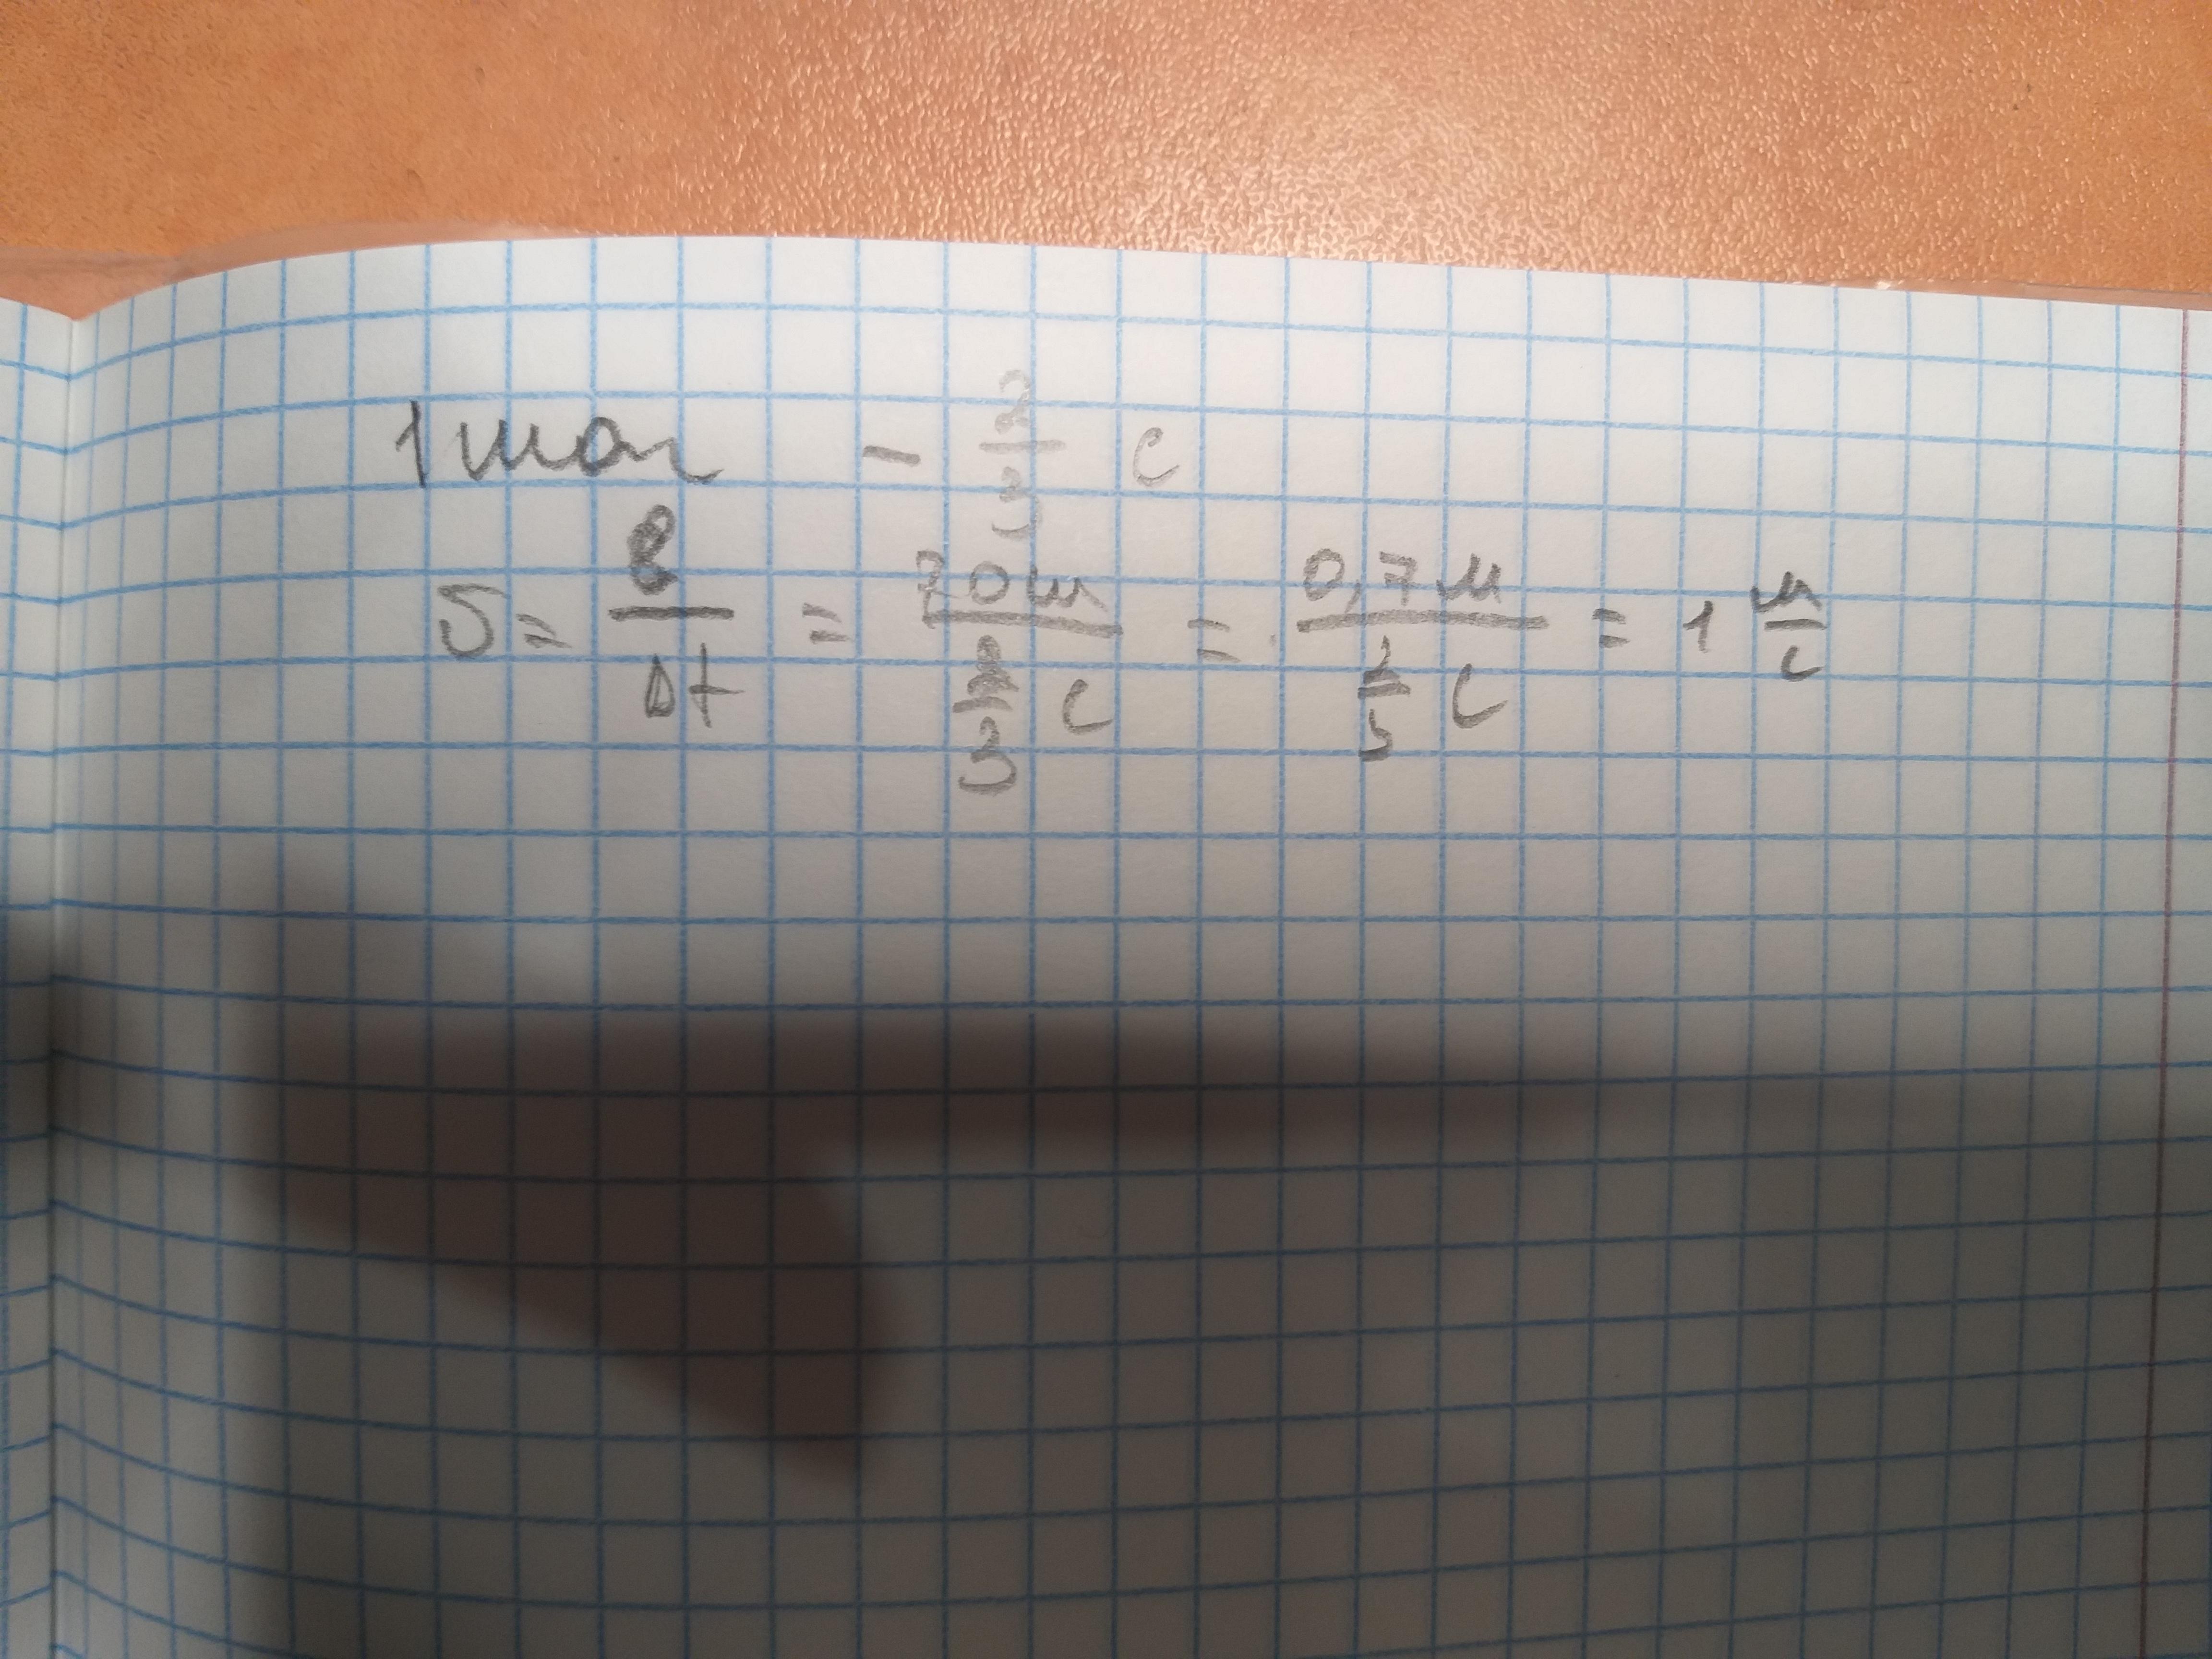 1 шаг - 2/3 с
S = v/Δt = 70 см / 2/3 с = 0,7 м / 2/3 с = 1 м/с